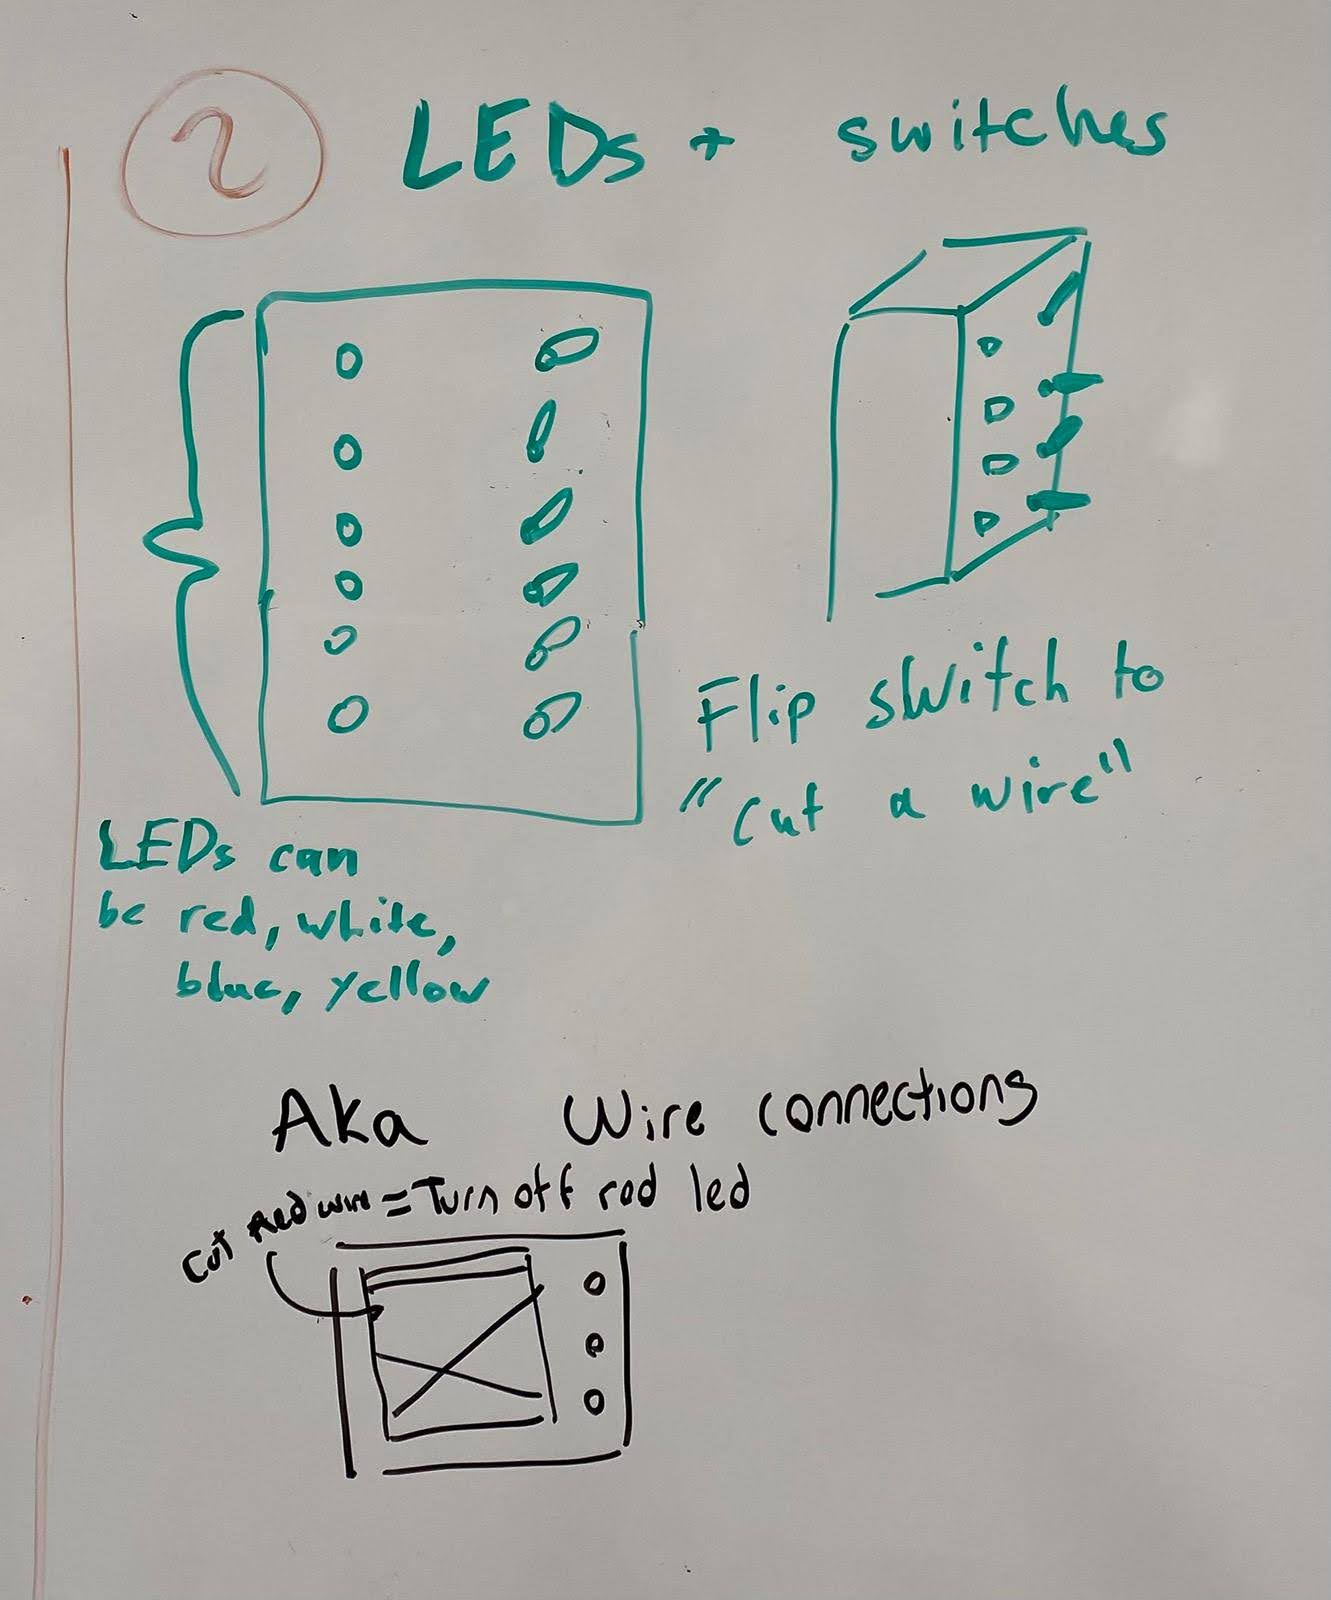 2
LEDs + switches
Flip switch to
"cut a wire"
LEDs can
be red, white,
blue, yellow
Aka Wire connections
Cut Red wire = Turn off red led